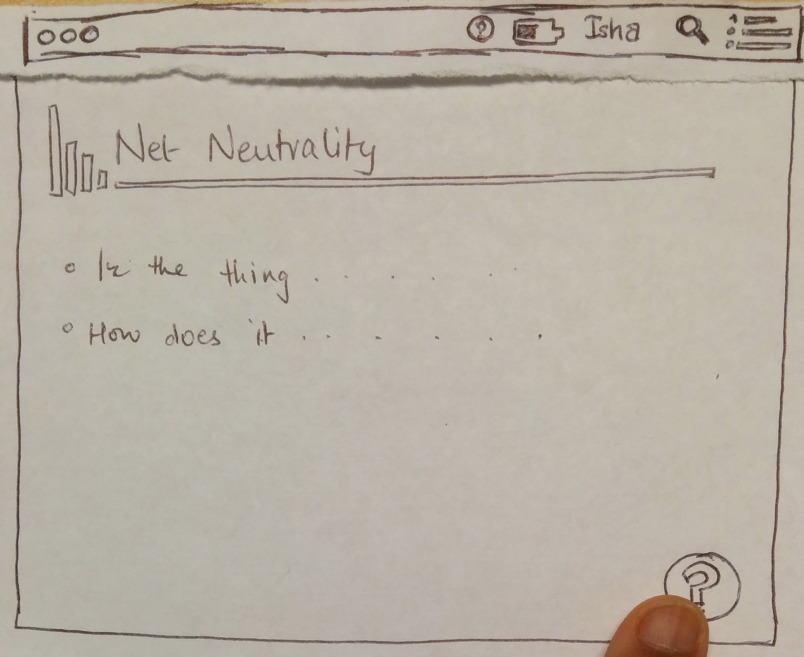 ? Isha
Net Neutrality
Is the thing . . . . .
How does it . . . . . .
?